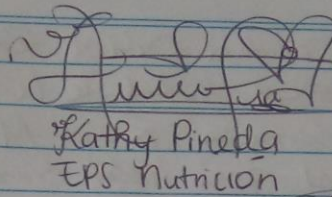 Kathy Pineda
EPS Nutrición